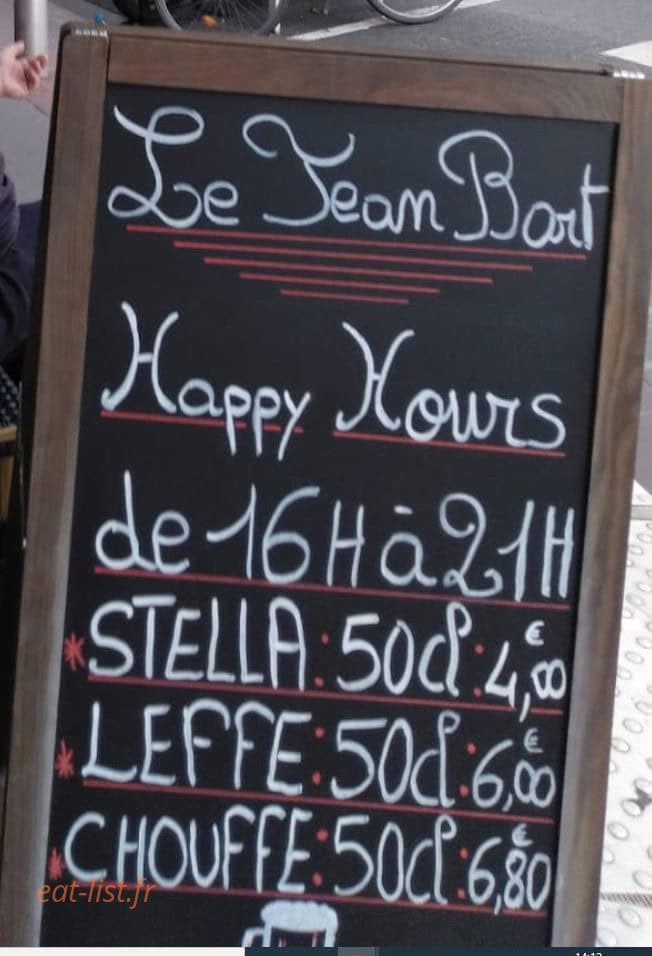 Le Jean Bart
Happy Hours
de 16H à 21H
* STELLA : 50cl : 4,00€
* LEFFE : 50cl : 6,00€
* CHOUFFE : 50cl : 6,80€
eat-list.fr